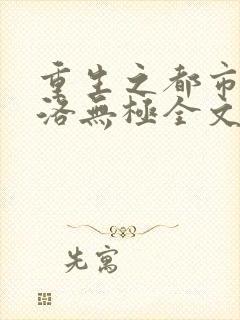 重生之都市
洛無極全文
先寓